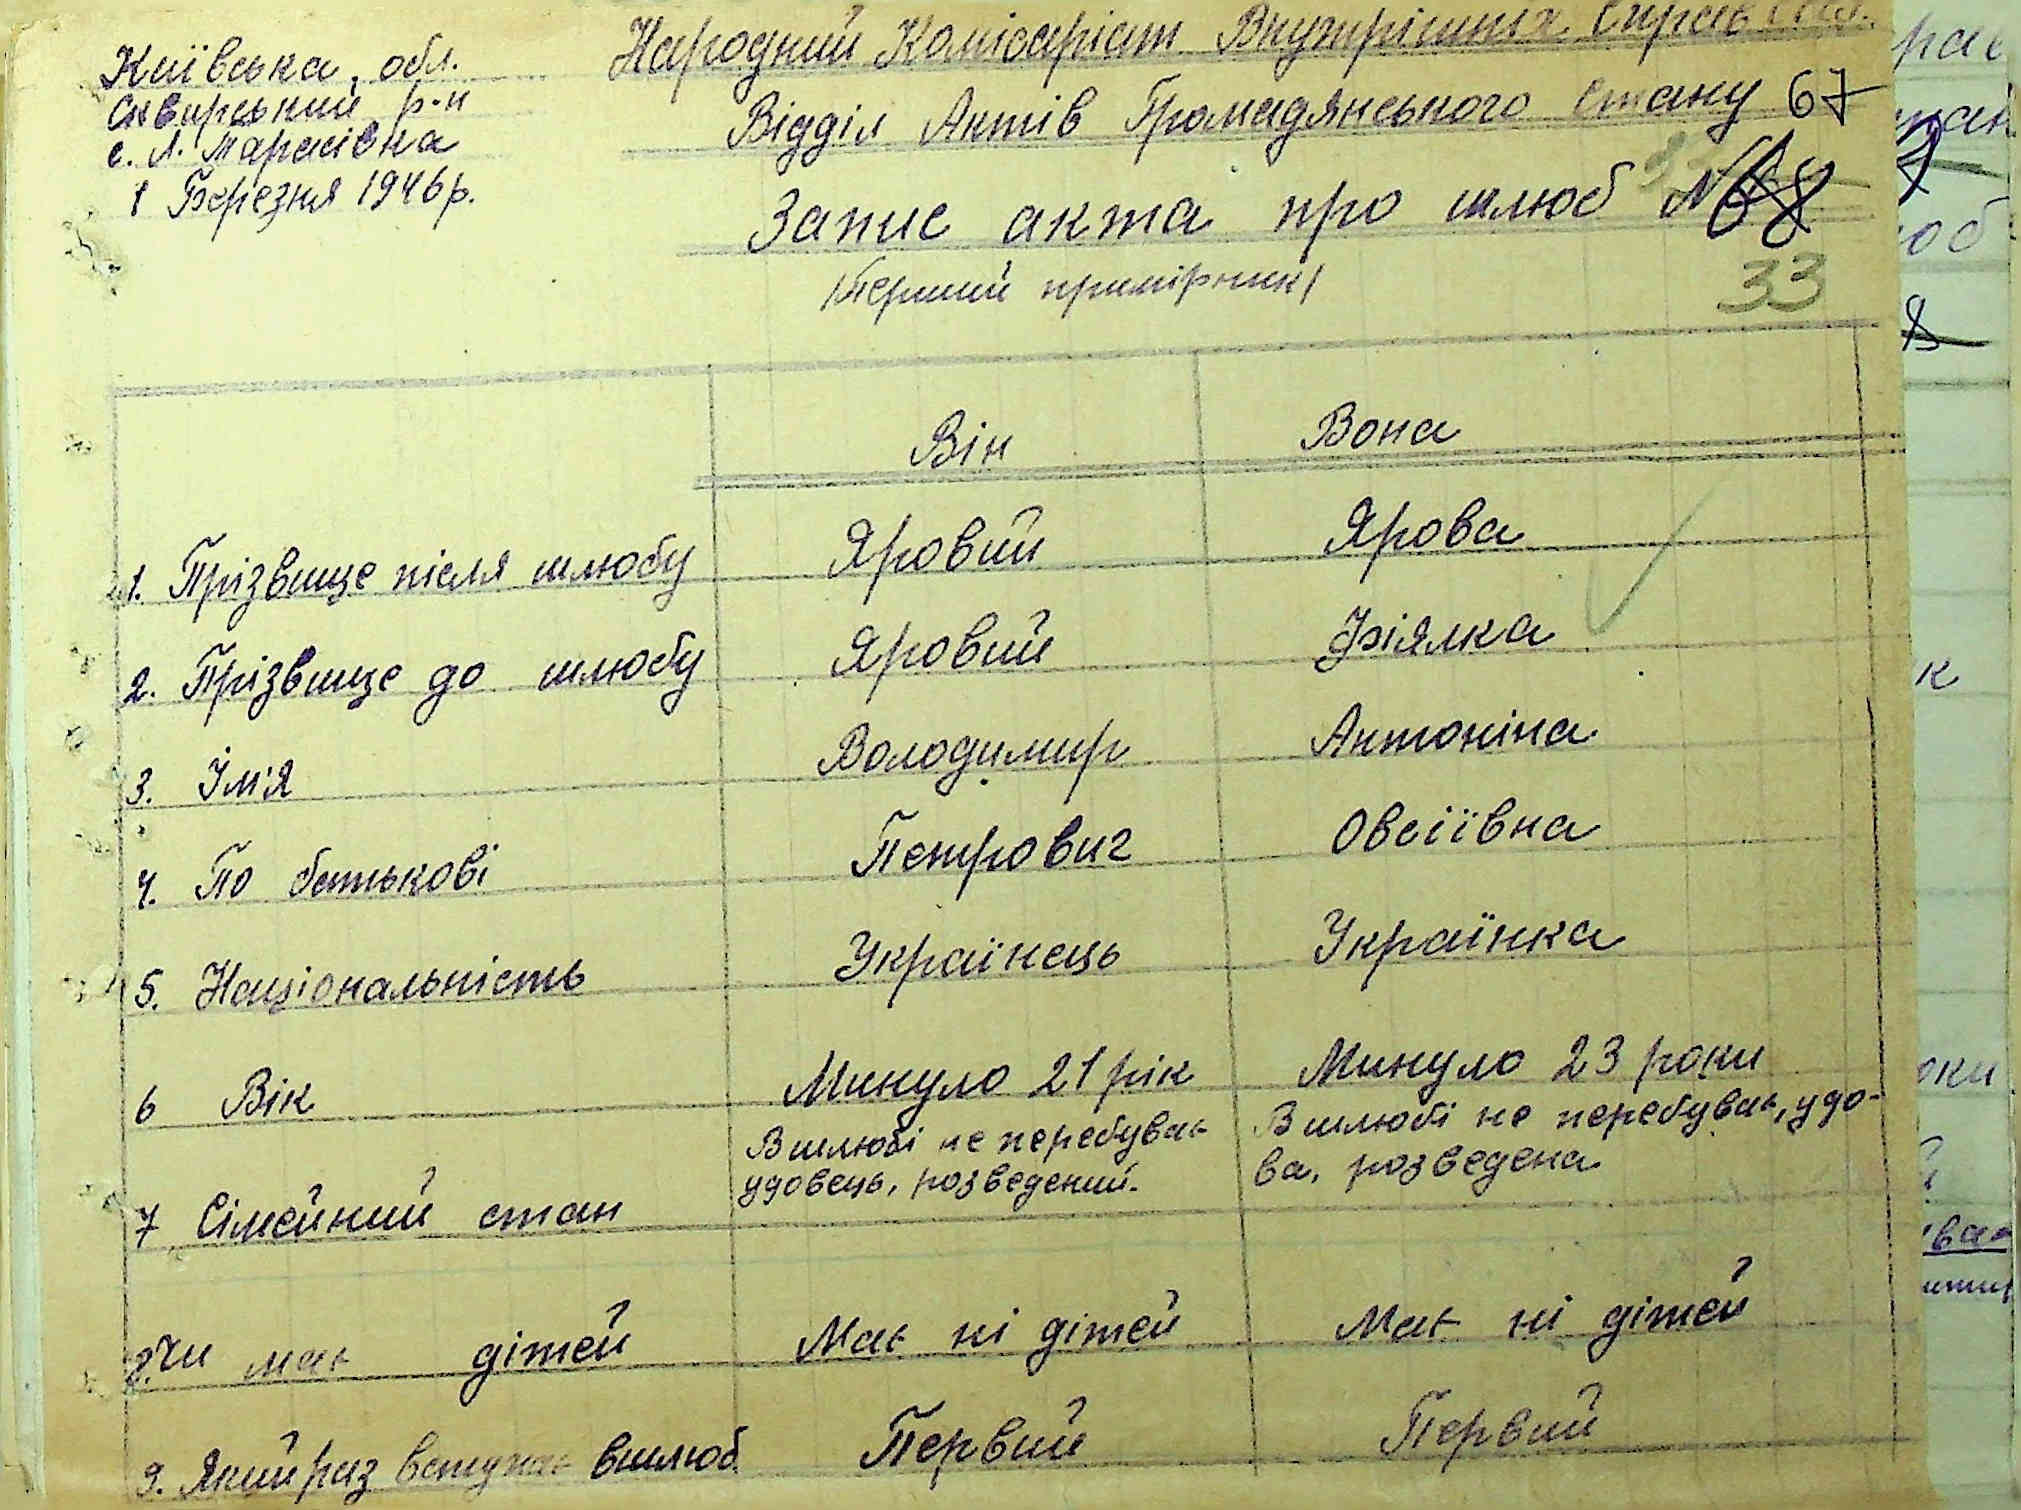 Київська обл.
Сквирський р-н
с. Л. Тарасівка
1 Березня 1946 р.
Народний Комісаріат Внутрішніх Справ
Відділ Актів Громадянського Стану 67
Запис акта про шлюб №
/Перший примірник/
33
Він Вона
1. Прізвище після шлюбу Яровий Ярова
2. Прізвище до шлюбу Яровий Фіялка
3. Ім'я Володимир Антоніна
4. По батькові Петрович Овсіївна
5. Національність Українець Українка
6 Вік Минуло 21 рік Минуло 23 роки
7 Сімейний стан В шлюбі не перебував В шлюбі не перебував, удо-
удовець, розведений. ва, розведена
8. Чи має дітей Має ні дітей Має ні дітей
9. Який раз вступає вшлюб Первий Первий